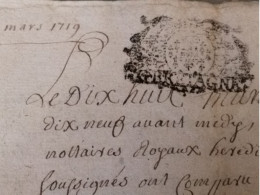 mars 1719
BRETAGNE
Le Dix huit mars
dix neuf avant midy
nottaires Royaux heredi
soussignés ont Comparu